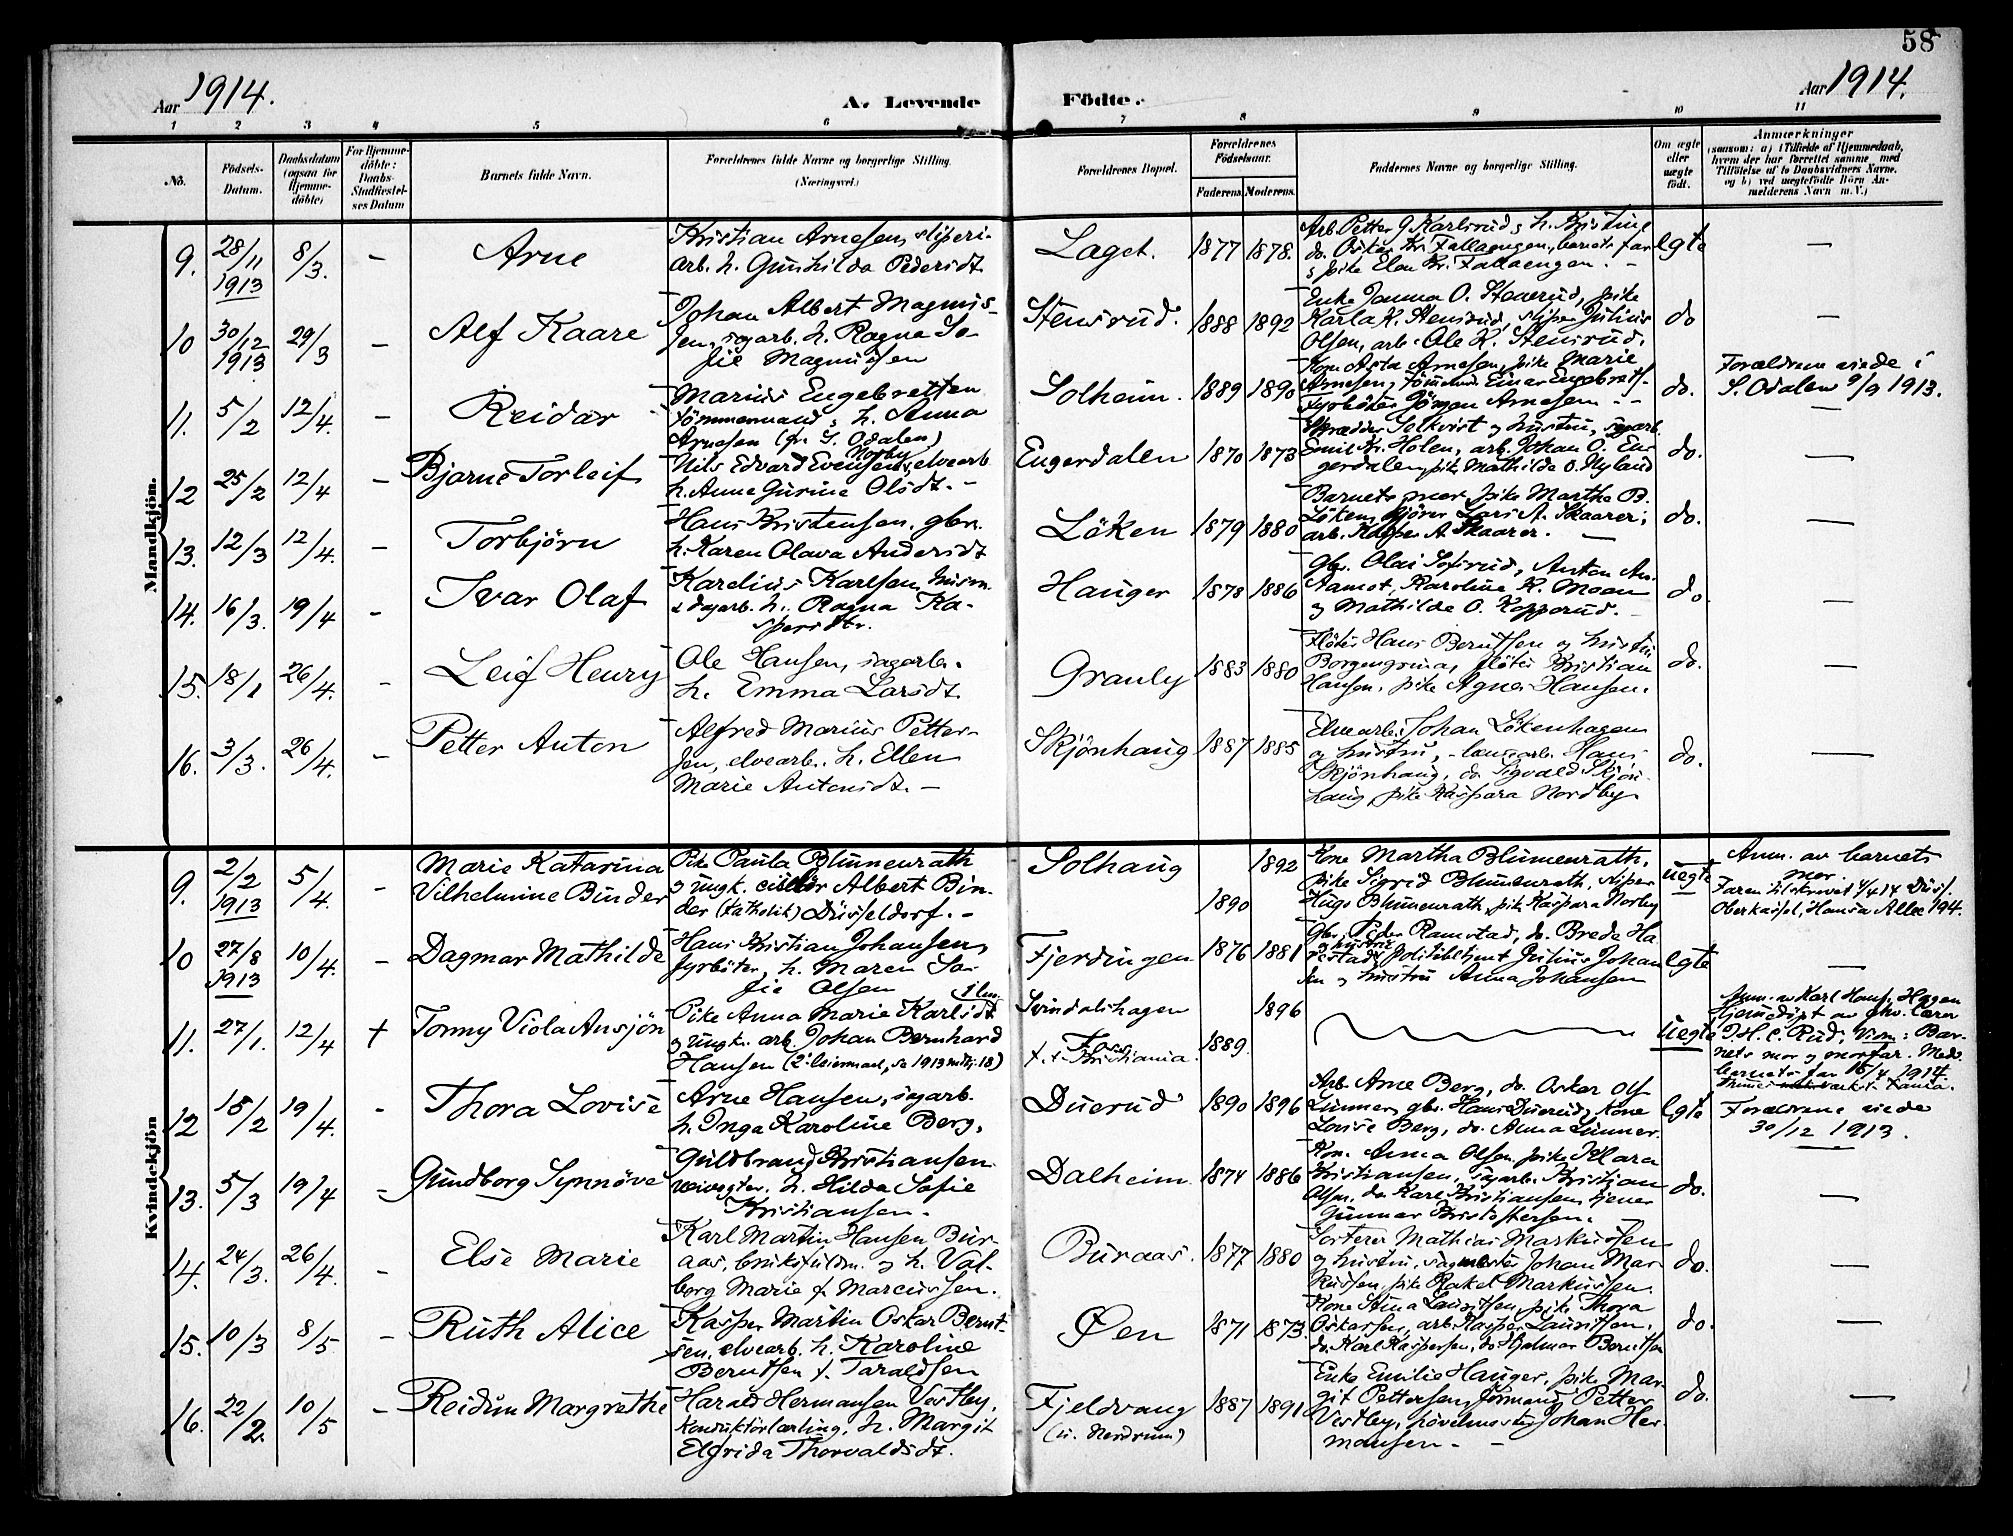 58
Aar 1914. A. Levende Födte. Aar 1914.
1 2 3 4 5 6 7 8 9 10 11
No. Födsels-Datum. Daabsdatum (ogsaa for Hjemme-döbte) For Hjemme-döbte: Daabs-Stadfæstel-ses Datum Barnets fulde Navn. Forældrenes fulde Navne og borgerlige Stilling. (Næringsvei.) Forældrenes Bopæl. Forældrenes Födselsaar. Faderens. Moderens. Faddernes Navne og borgerlige Stilling. Om ægte eller uægte födt. Anmærkninger (saasom: a) i Tilfælde af Hjemmedaab, hvem der har forrettet samme, med Tilföielse af to Daabsvidners Navne, og b) ved uægtefödte Börn An-melderens Navn m. V.)
Mandkjön.
9. 28/11 1913 8/3. – Arne
Kristian Arnesen, sliperi-
arb. h. Gunhilda Pedersdt.
Laget. 1877 1878.
Arb. Petter G. Karlsrud, h. Kristine
do. Oskar Kr. Fallaengen, barnets far
, pike Elen Kr. Fallaengen. –
egte –
10 30/12 1913 29/3 – Alf Kaare
Johan Albert Magnus-
sen, sagarb. h. Ragna So-
fie Magnussen
Stensrud. 1888 1892
Enke Janna O. Stensrud, pike
Karla K. Stensrud, sliper Julius
Olsen, arb. Ole K. Stensrud.
do –
11. 5/2 12/4. – Reidar
Marius Engebretsen
tömmermand, h. Anna
Arnesen (fr. S. Odalen)
Solheim. 1889 1890
Kone Asta Arnesen, pike Marie
Arnesen, tömmerm. Einar Engebrets.
Fyrböter Jörgen Arnesen – –
do.
Forældrene viede i
S. Odalen 9/9 1913.
–
12 25/2 12/4 – Bjarne Torleif
Norby
Nils Edvard Evensen, elvearb.
h. Anne Gurine Olsdt. –
Engerdalen 1870 1873
Skrædder Selkvist og hustru, sagarb.
Emil Kr. Holen, arb. Johan O. En-
gerdalen, pike Mathilde O. Nyland
do. –
13. 12/3 12/4. – Torbjörn
Hans Kristensen, gbr.
h. Karen Olava Andersdt.
Löken 1879 1880
Barnets mor, pike Martha B.
Löken, kjörer Lars A. Skaarer,
arb. Kasper A. Skaarer. –
do. –
14. 16/3. 19/4 – Ivar Olaf
Karelius Karlsen, husm.
& sagarb. h. Ragna Ka-
spersdtr.
Hauger 1878 1886
gbr. Olai Sofsrud, Anton An.
Aamot, Karoline K. Moen
og Mathilde O. Kopperud. –
do. –
15. 18/1 26/4. – Leif Henry
Ole Hansen, sagarb.
h. Emma Larsdt.
Granly 1883 1880
Flöter Hans Berntsen og hustru
Borgengrina, flöter Kristian
Hansen, pike Agnes Hansen.
do. –
16. 3/3. 26/4. – Petter Anton
Alfred Marius Petter-
sen, elvearb. h. Ellen
Marie Antonsdt. –
Skjönhaug 1887 1885
Elvearb. Johan Lökenhagen
og hustru, – lensearb. Hans
Skjönhaug, do Sigvald Skjön-
haug, pike Kaspara Nordby.
do. –
Kvindekjön
9. 2/2 1913 5/4. – Marie Katarina
Vilhelmine Binder
Pike Paula Blumenrath
og ungk. ciselör Albert Bin-
der (Katholik) Düsseldorf. –
Solhaug 1890 1892
Kone Martha Blumenrath,
pike Sigrid Blumenrath, sliper
Hugo Blumenrath, pike Kaspara Norby
uegte
Anm. av barnets
mor.
Faren tilskrevet 4/4 14 Düss.
Oberkassel, Hansa Allee 194.
10 27/8 1913 10/4. – Dagmar Mathilde
Hans Kristian Johansen,
fyrböter, h. Maren So-
fie Olsen
Fjerdingen 1876 1881
Gbr. Peder Ramstad, do. Brede Ha-
restad og hustru, Politibetjent Julius Johan-
sen og hustru Anna Johansen
egte –
11. 27/1. 12/4 + Tonny Viola Ansjön
Pike Anna Marie Karlsdt.
og ungk. arb. Johan Bernhard
Hansen (2. leiermaal, se 1913 mdkj. 18)
Svindalshagen 1896
Kristiania. 1889.
uegte
Anm. av Karl Hans. Hagen
hjemdöpt av fhv. lærer
J. H. C. Rud; Vidn: Bar-
nets mor og morfar. Medd.
barnets far 16/4 1914
12 15/2 19/4. – Thora Lovise
Arne Hansen, sagarb.
h. Inga Karoline Berg.
Duerud 1890 1896
Arb. Arne Berg, do. Oskar Ols.
Linner, gbr. Hans Duerud, Kone
Lovise Berg, do. Anna Linner.
egte
Forældrene viede
30/12 1913.
13. 5/3 19/4 – Gundborg Synnöve
Guldbrand Kristiansen
veivogter, h. Hilda Sofie
Kristiansen.
Dalheim. 1874 1886
Kone Anna Olsen, pike Klara
Kristiansen, sagarb. Kristian
Olsen, do Karl Kristiansen, tjener
Gunnar Kristoffersen.
do. –
14. 24/3. 26/4. – Else Marie
Karl Martin Hansen Bur-
aas, bruksfuldm. og h. Val-
borg Marie f. Marcussen.
Buraas. 1877 1880
Sorterer Mathias Markussen
og hustru, sagmester Johan Mar-
kussen, pike Rakel Markussen.
do. –
15. 10/3 8/5 – Ruth Alice
Kasper Martin Oskar Bernt-
sen, elvearb. h. Karoline
Berntsen f. Taraldsen
Øen 1871 1873.
Kone Stina Lauritsen, pike Thora
Oskarsen, arb. Kasper Lauritsen,
do. Karl Kaspersen, do Hjalmar Berntsen
do. –
16. 22/2. 10/5 – Reidun Margrethe
Harald Hermansen Vestby,
Konduktörlærling, h. Margit
Elfrida Thorvaldsdt.
Fjeldvang
(u. Nordrum)
1887 1891
Enke Emilie Hauger, pike Mar-
git Pettersen, formand Petter
Vestby, hövelmester Johan Her-
mansen. –
do. –